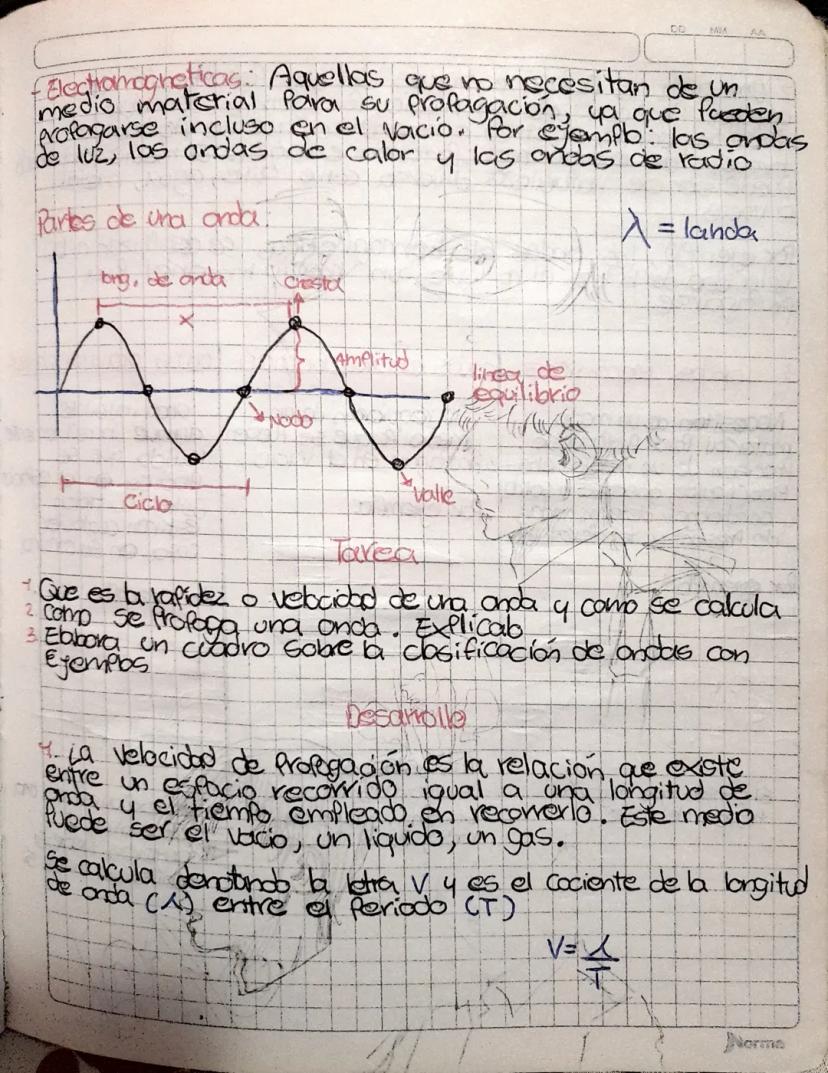 DD MM AA
- Electromagneticas: Aquellas que no necesitan de un
medio material para su propagación, ya que pueden
propagarse incluso en el vacio. Por ejemplo: las ondas
de luz, las ondas de calor y las ondas de radio
Partes de una onda:
λ = landa
long. de onda
Cresta
x
Amplitud
linea de
equilibrio
Nodo
Valle
Ciclo
Tarea
1 Que es la rapidez o velocidad de una onda y como se calcula
2 Como se propaga una onda. Explicalo
3. Elabora un cuadro sobre la clasificación de ondas con
Ejemplos
Desarrollo
1. La velocidad de propagación es la relación que existe
entre un espacio recorrido igual a una longitud de
onda y el tiempo empleado en recorrerlo. Este medio
Puede ser el vacio, un liquido, un gas.
Se calcula denotando la letra V y es el cociente de la longitud
de onda (λ) entre el Periodo (T)
V= λ
T
Norma